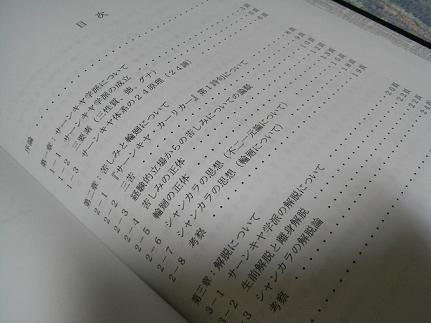 目次
序論
第一章：サーンキヤ学派について
1-1 サーンキヤ学派の成立
1-2 三要素（三性質、徳、グナ）
1-3 サーンキヤ体系の24原理（24諦）
第二章：苦しみと輪廻について
2-1 『サーンキヤ・カーリカー』第1詩句について
2-2 三苦
2-3 経験的立場からの苦しみについての論題
2-4 苦しみの正体
2-5 輪廻の正体
2-6 シャンカラの思想（不二一元論について）
2-7 シャンカラの思想（輪廻について）
2-8 考察
第三章：解脱について
3-1 サーンキヤ学派の解脱について
3-2 生前解脱と離身解脱
3-3 シャンカラの解脱論
考察